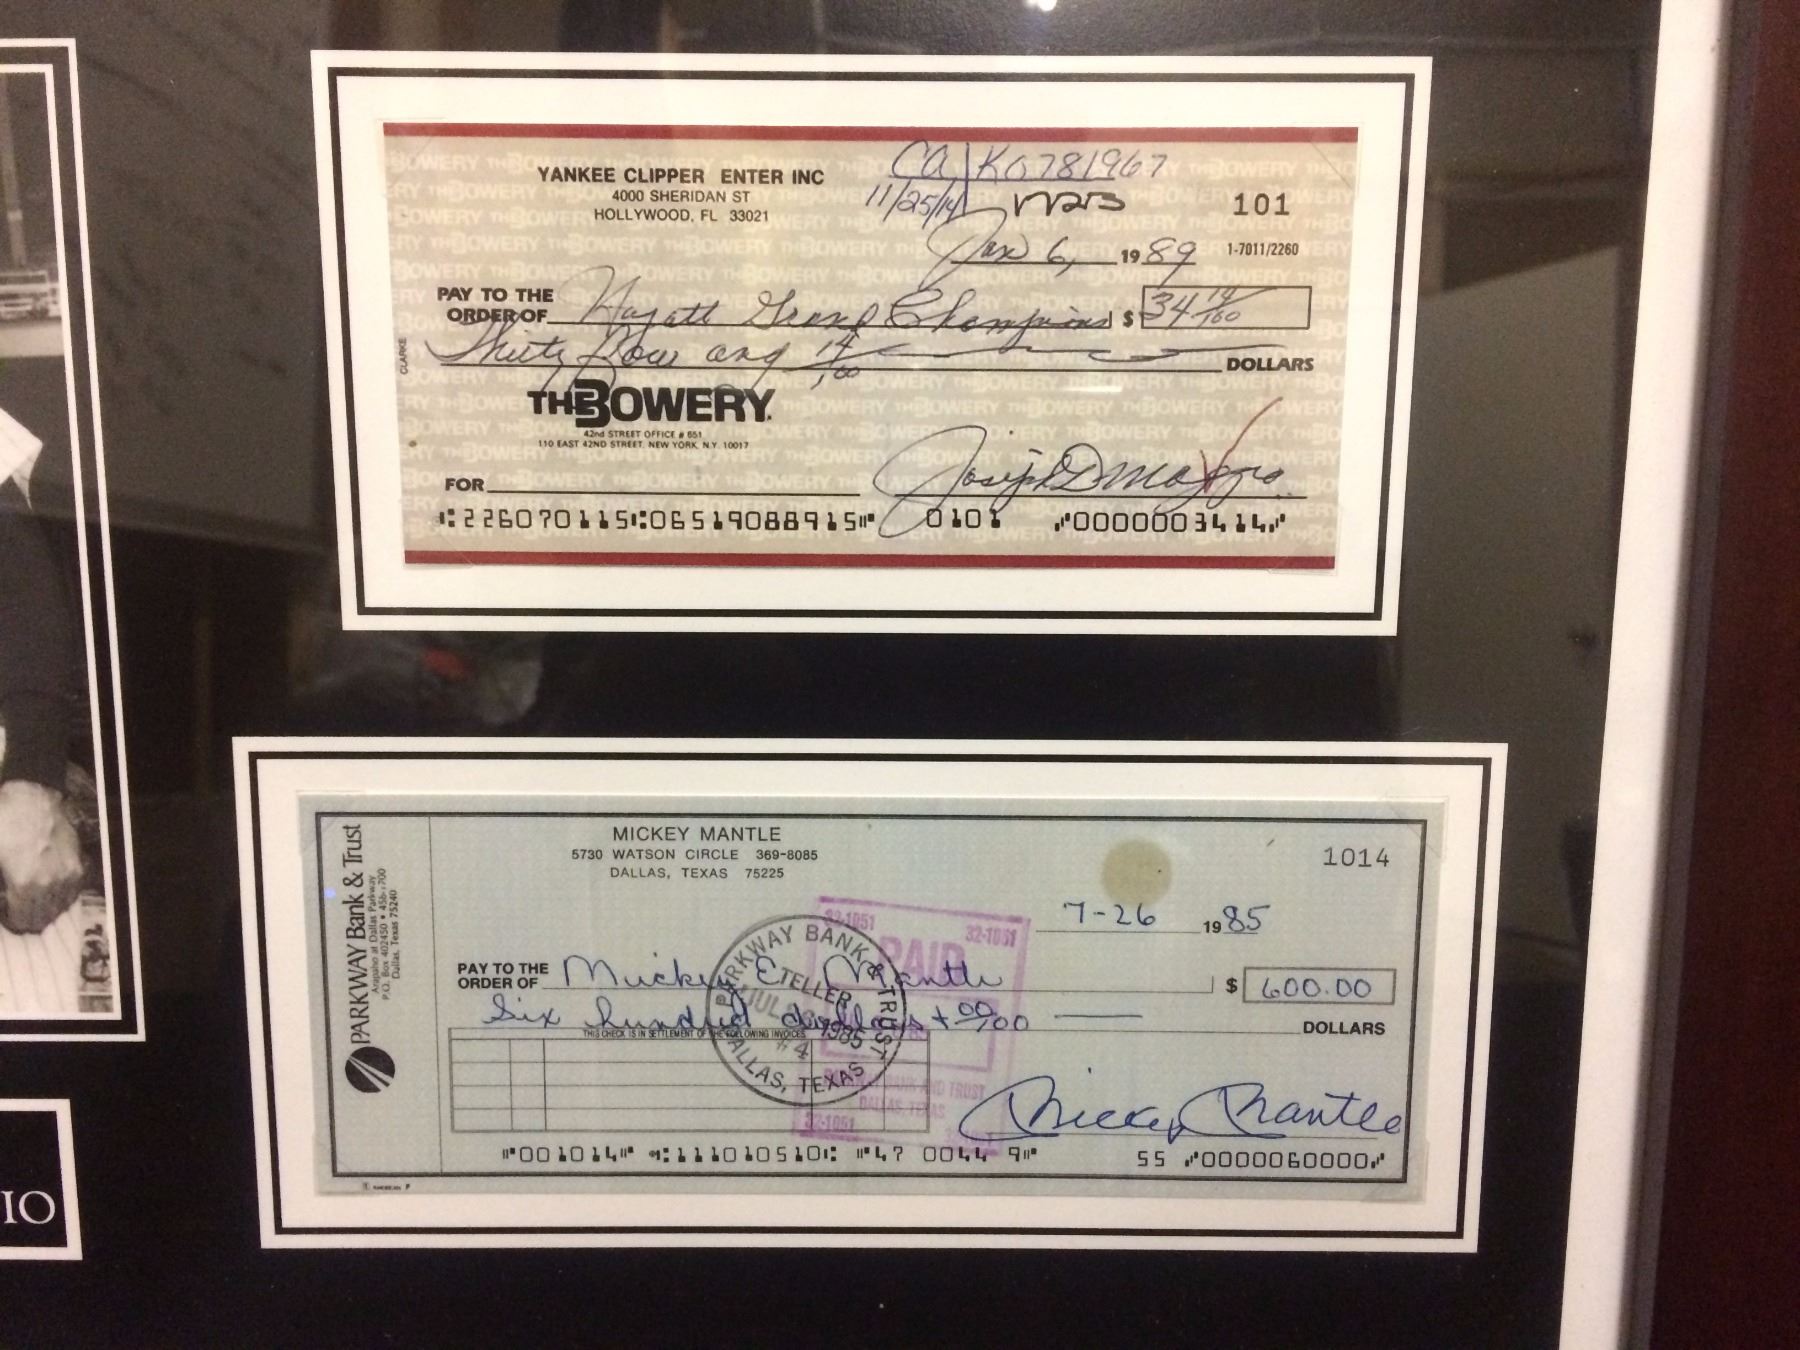 YANKEE CLIPPER ENTER INC
4000 SHERIDAN ST
HOLLYWOOD, FL 33021
CA K0781967
11/25/14
101
Jan 6, 1989
1-7011/2260
PAY TO THE ORDER OF Hyatt Grand Champions $ 34 14/100
Thirty Four and 14/100 DOLLARS
CLARKE
THE BOWERY
42nd STREET OFFICE # 651
110 EAST 42ND STREET, NEW YORK, N.Y. 10017
FOR
Joseph DiMaggio
⑆226070115⑆06519088915⑈ 0101 ⑇0000003414⑇
IO
PARKWAY Bank & Trust
Arapaho at Dallas Parkway
P.O. Box 402450 • 456-1700
Dallas, Texas 75240
MICKEY MANTLE
5730 WATSON CIRCLE 369-8085
DALLAS, TEXAS 75225
1014
7-26 1985
PAY TO THE ORDER OF Mickey E. Mantle $ 600.00
Six hundred dollars + 00/100 DOLLARS
THIS CHECK IS IN SETTLEMENT OF THE FOLLOWING INVOICES
PARKWAY BANK & TRUST
TELLER
JUL 1985
#4
DALLAS, TEXAS
32-1051 32-1051
PAID
BANK AND TRUST
DALLAS, TEXAS
32-1051
Mickey Mantle
⑈001014⑈ ⑆111010510⑆ ⑈47 0044 9⑈ 55 ⑇0000060000⑇